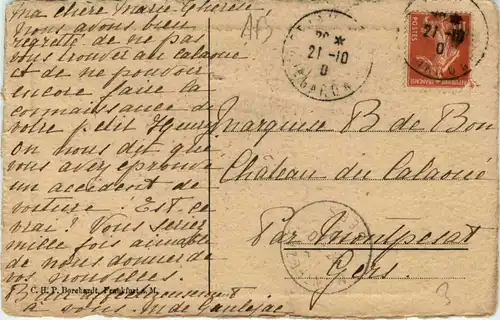 Ma chère Marie Thérèse,
Nous avons bien
regretté de ne pas
vous trouver au Calaoué
et de ne pouvoir
encore faire la
connaissance de
votre petit Henry
On nous dit que
vous avez éprouvé
un accident de
voiture! Est-ce
vrai? Vous seriez
mille fois aimable
de nous donner de
vos nouvelles.
Bien affectueusement
à vous. M de Gaulejac
C. H. P. Borchardt, Frankfurt a. M.
AB
21-10
POSTES
21-10
Marquise B de Bon
Château du Calaoué
Par Montpezat
Gers.
3